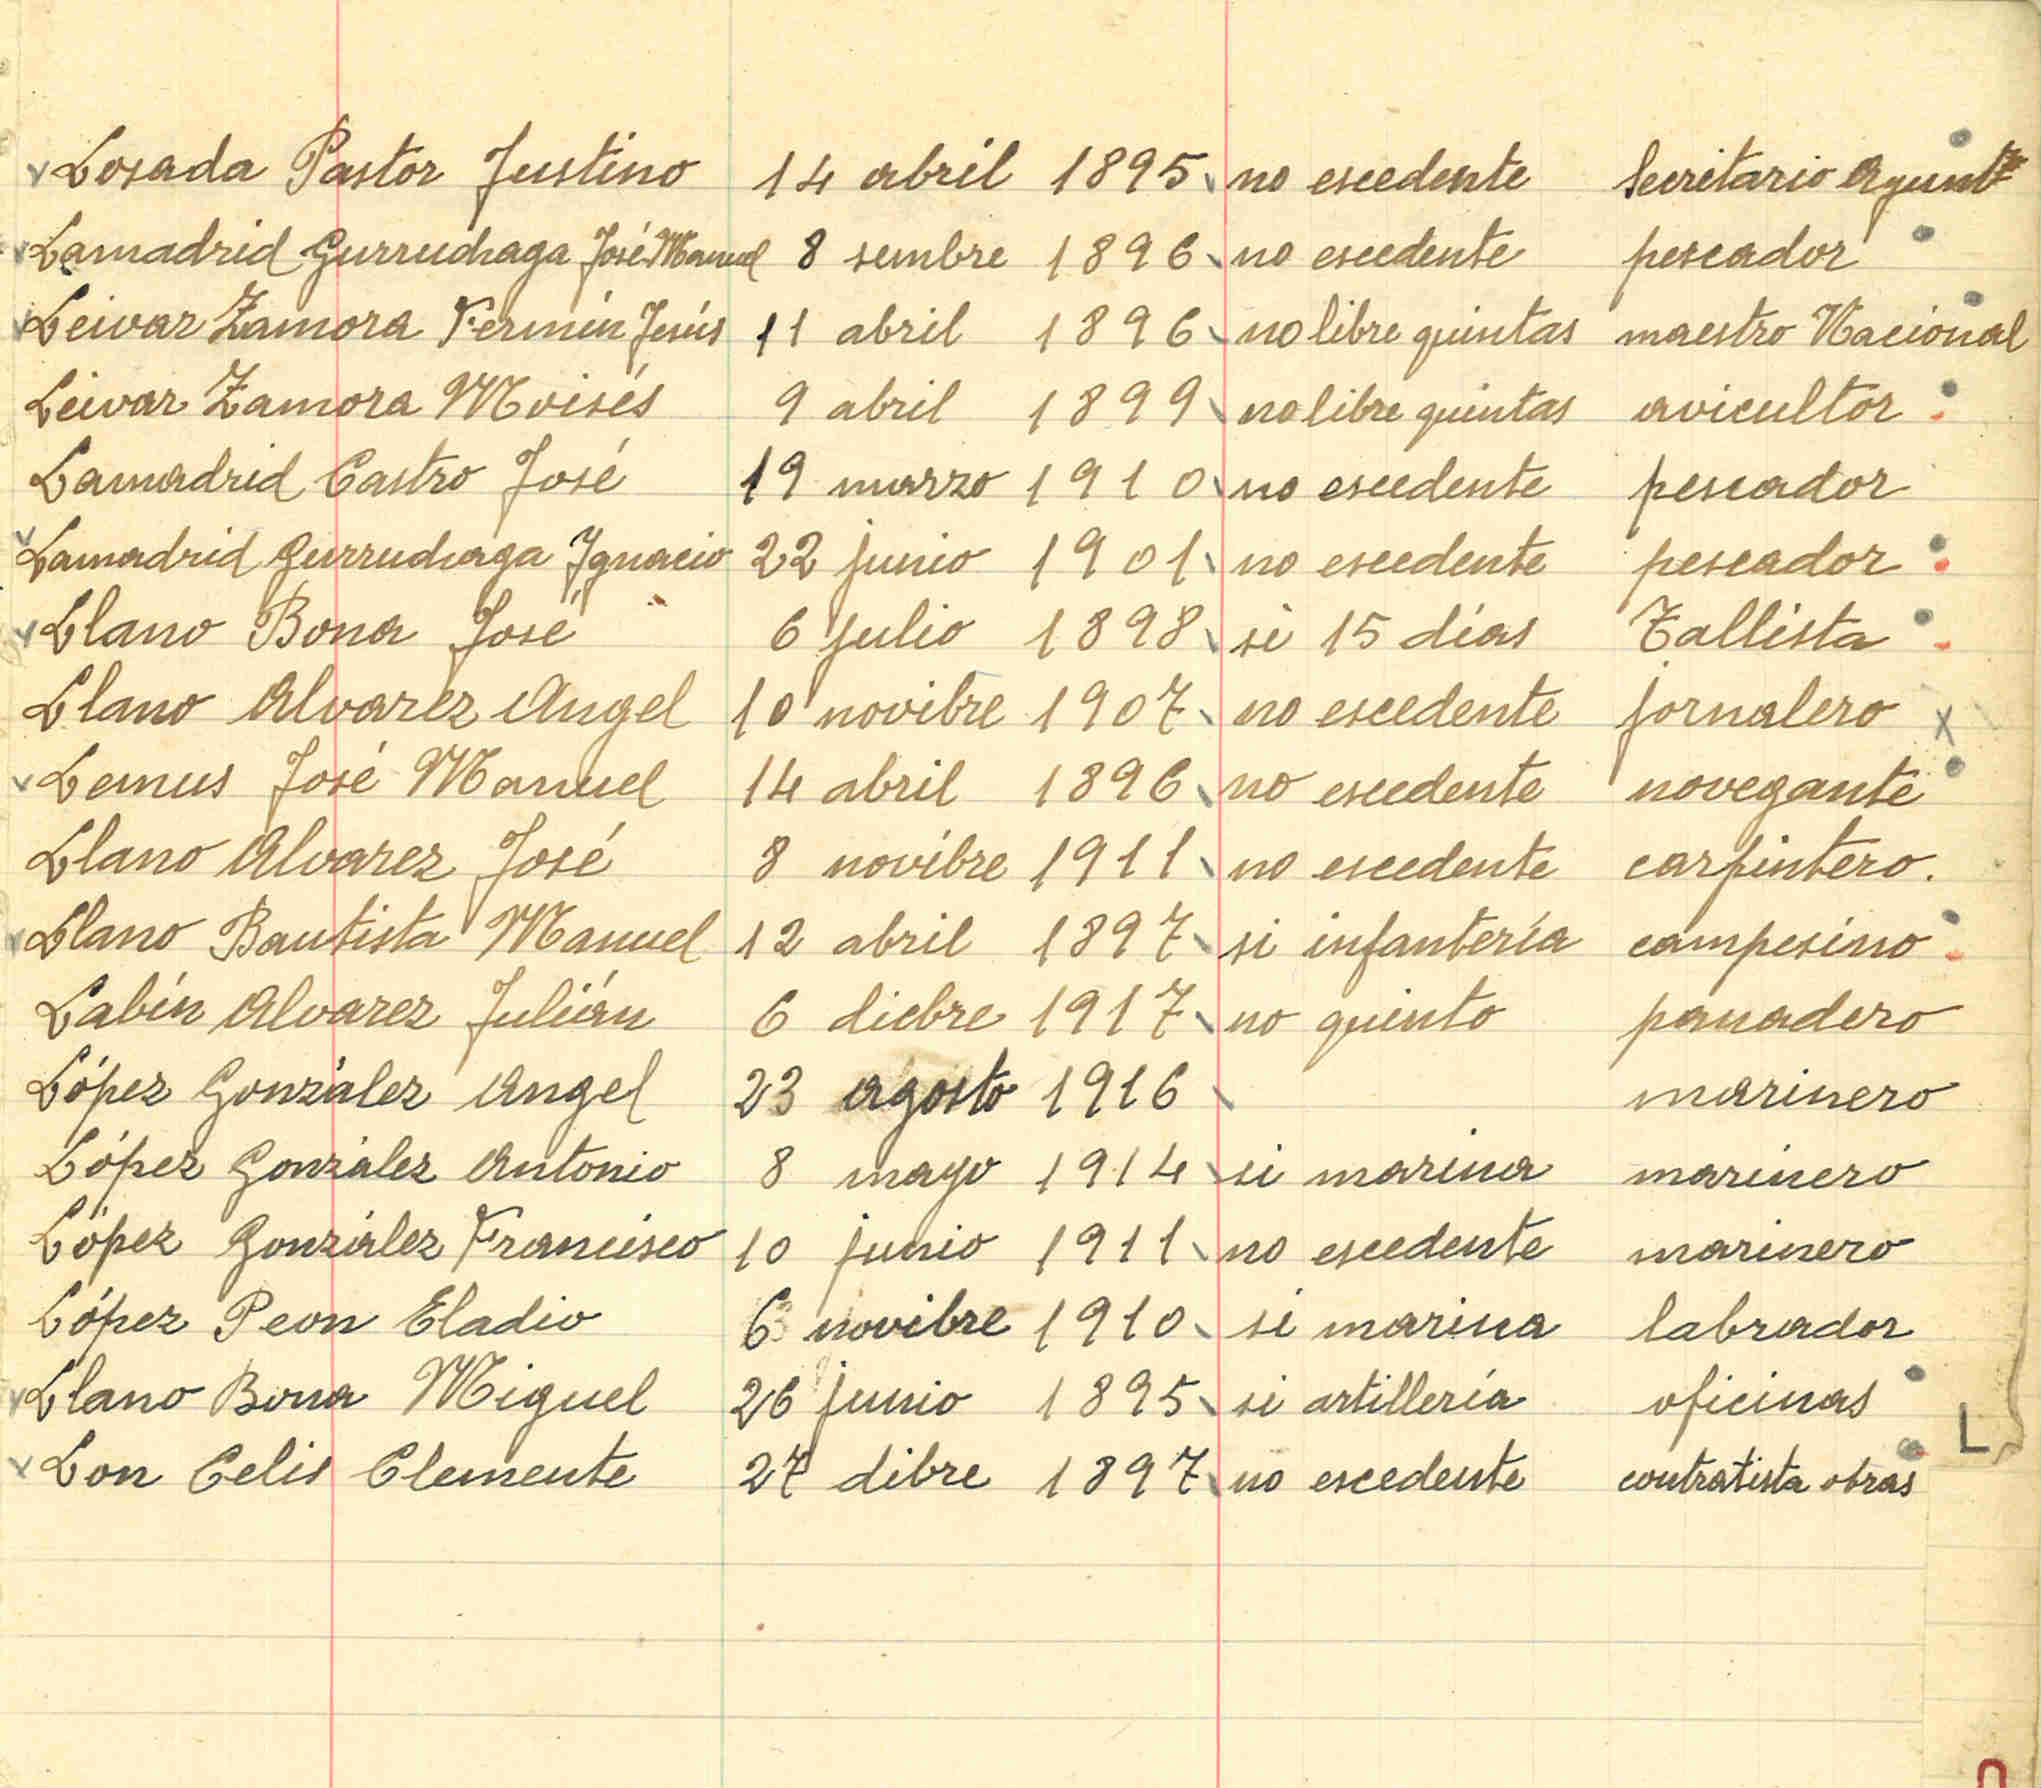 Losada Pastor Justino 14 abril 1895 no escedente Secritario Ayunt°
Lamadrid Gurruchaga José Manuel 8 sembre 1896 no escedente pescador
Leivar Zamora Fermín Jesús 11 abril 1896 no libre quintas maestro Nacional
Leivar Zamora Moisés 9 abril 1899 no libre quintas avicultor
Lamadrid Castro José 19 marzo 1910 no escedente pescador
Lamadrid Gurruchaga Ignacio 22 junio 1901 no escedente pescador
Llano Bona José 6 julio 1898 si 15 días Tallista
Llano Alvarez Angel 10 novibre 1907 no escedente jornalero x
Lemus José Manuel 14 abril 1896 no escedente novegante
Llano Alvarez José 8 novibre 1911 no escedente carpintero.
Llano Bautista Manuel 12 abril 1897 si infantería campesino
Labín Alvarez Julián 6 diebre 1917 no quinto panadero
López González Angel 23 agosto 1916 marinero
López González Antonio 8 mayo 1914 si marina marinero
López González Francisco 10 junio 1911 no escedente marinero
López Peon Eladio 6 novibre 1910 si marina labrador
Llano Bona Miguel 26 junio 1895 si artillería oficinas
L
Lon Celis Clemente 27 dibre 1897 no escedente contratista obras